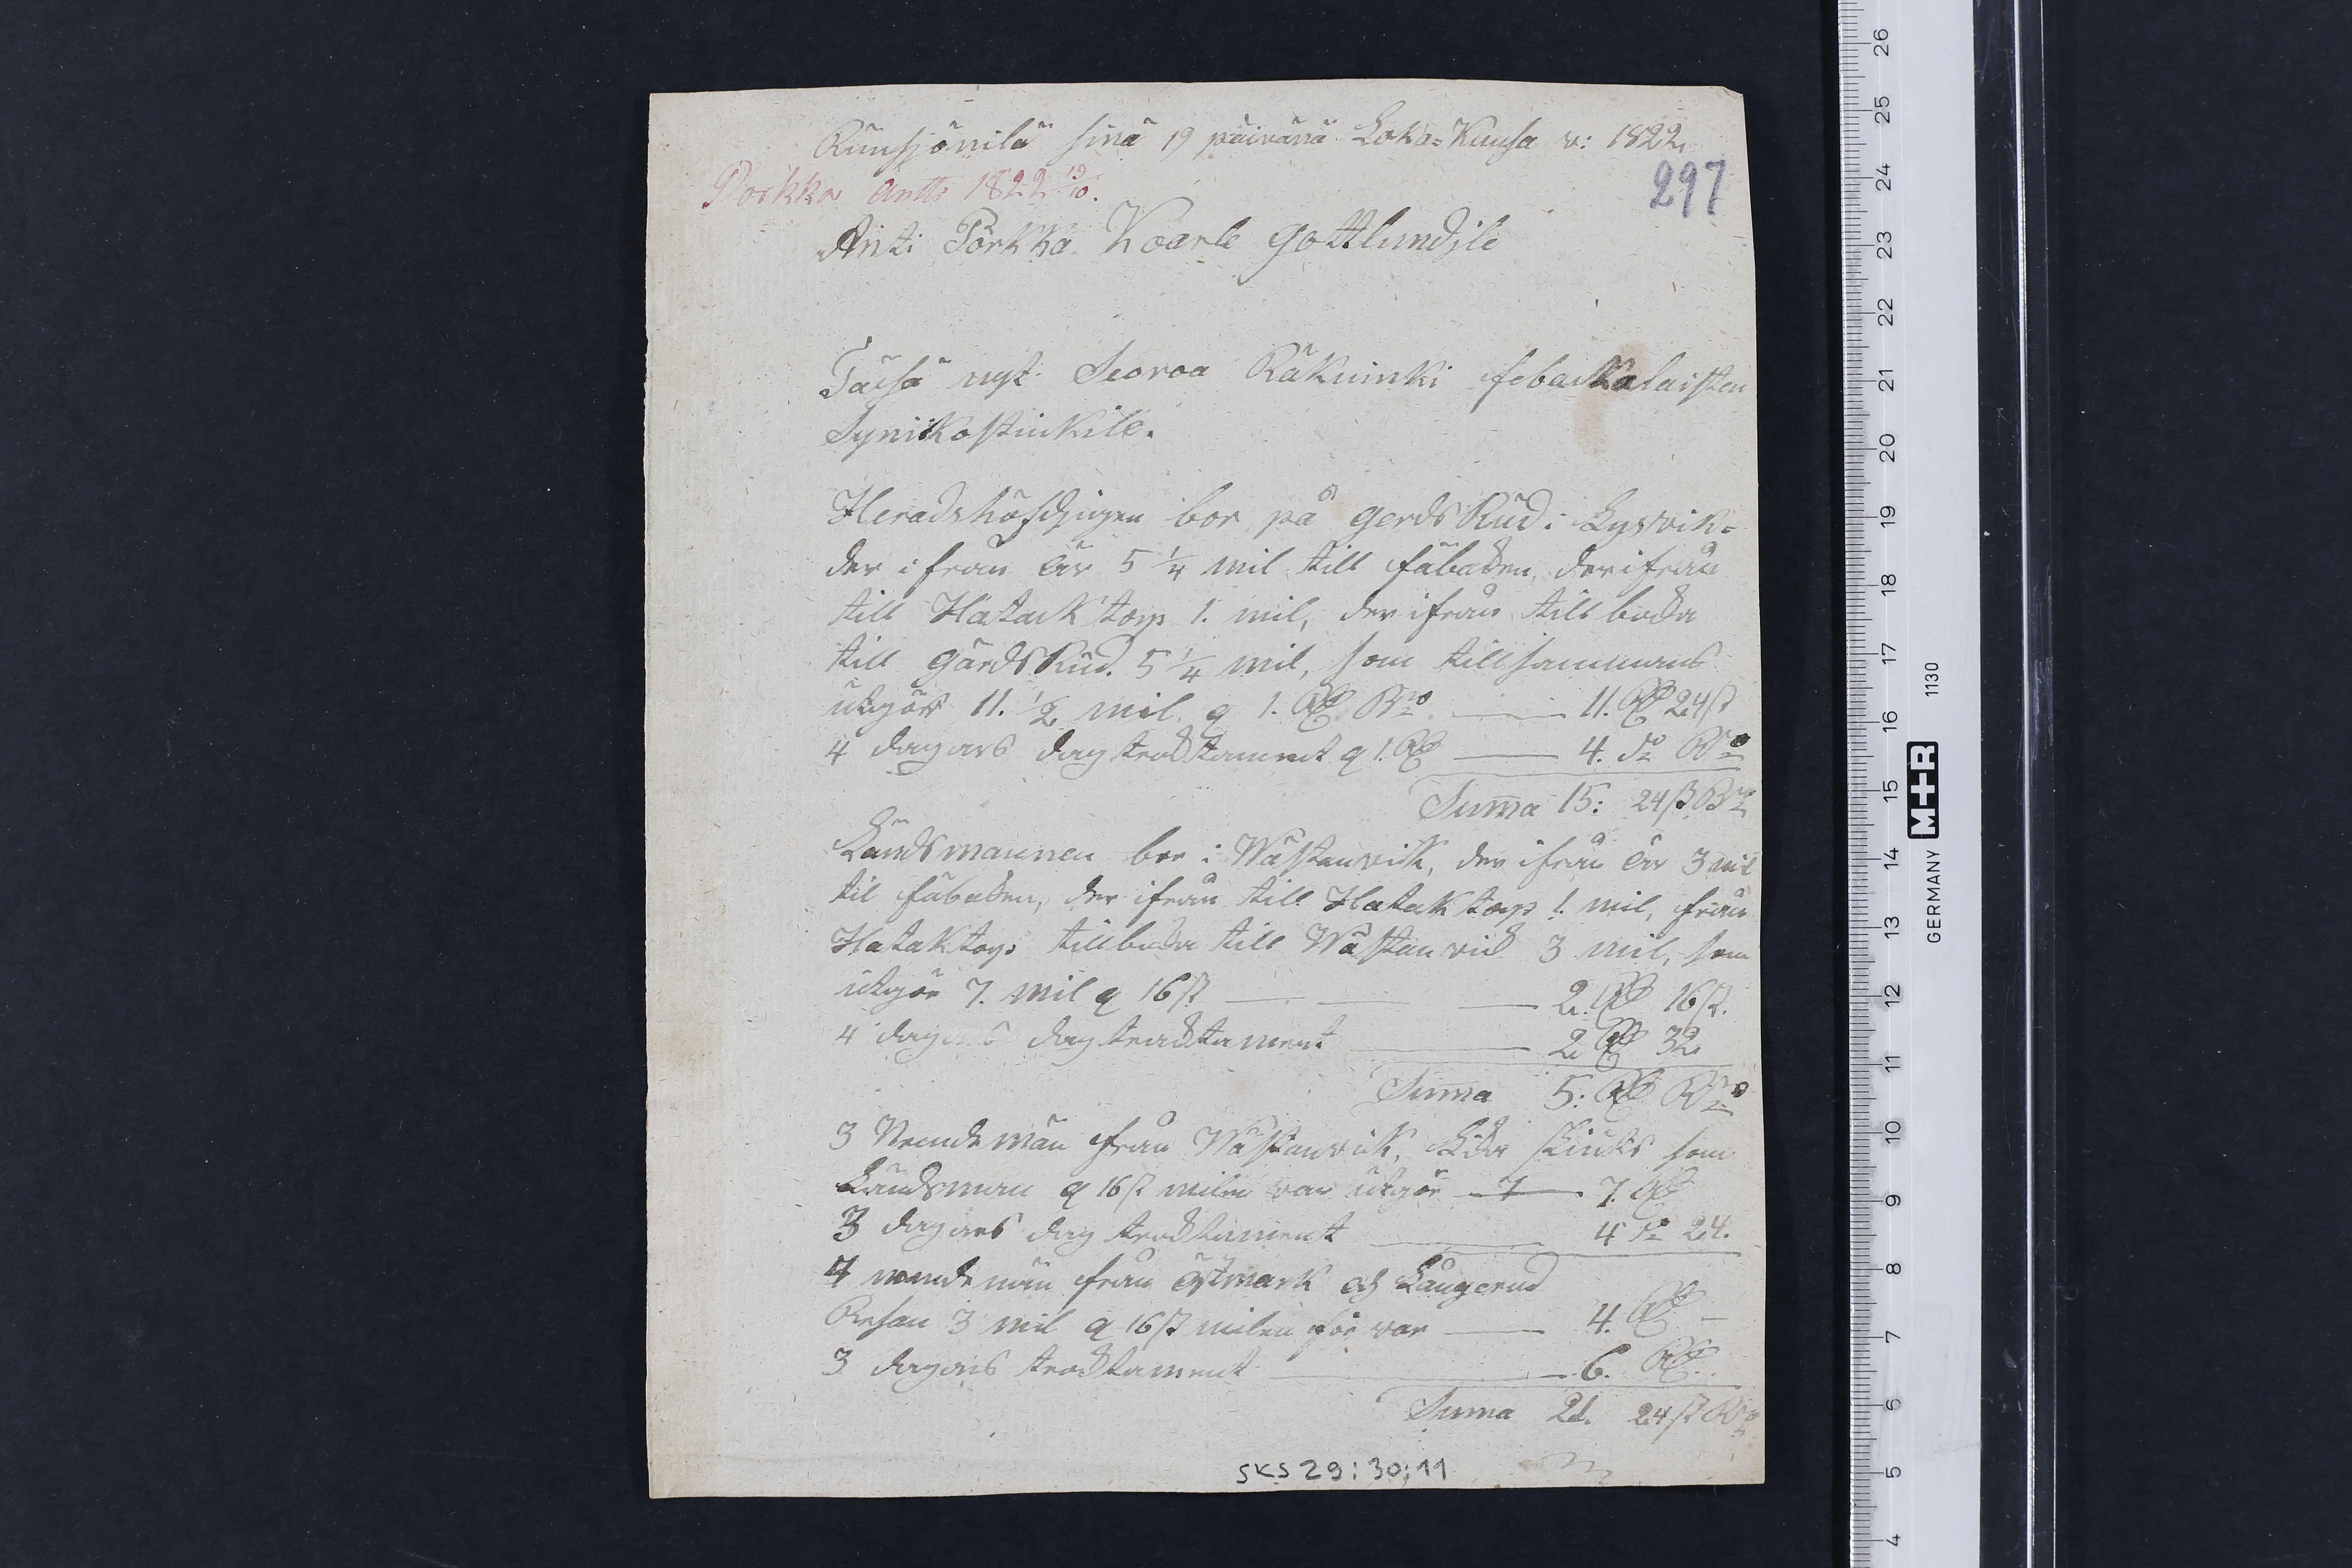 Runsjönilä sinä 19 päivänä Loka=Kuusa v: 1822
Porkka Antti 1822 19/10.
297
Anti Porkka Kaarle Gottlundile
Täesä nyt Seoroa Räkninki febackalaisten
Synnikostinkile.
Heradshöfdingen bor på Gerds Rud i Lysvik=
der ifrån är 5 1/4 mil till Fäbacken, der ifrån
till Hatack torp 1. mil, der ifrån till baka
till Gärds Rud. 5 1/4 mil, som tillsammans
utgör 11. 1/2 mil. a 1. Rd Bco 11. Rd 24 s
4 dagars dagtracktament a 1. Rd 4. do Bco
Summa 15: 24 s Bco
Ländsmannen bor i Wästanvik, der ifrån är 3 mil
til fäbacken, der ifrån till Hatak torp 1. mil, från
Hataktorp tillbaka till Wästanvick 3 mil, som
utgör 7. mil a 16 s 2. Rd 16 s.
4 dagars dagtracktament 2 Rd 32
Summa 5: Rd Bco
3 Nemdemän från Wästanvik, lika skiuts som
Ländsman a 16 s milen var utgör 7. Rd
3 dagars dag tracktament 4 do 24.
4 nemdemän från Östmark och Långerud
Resan 3 mil a 16 s milen för var 4. Rd
3 dagars tracktament 6. Rd
Summa 21. 24 s Bco
SKS 29:30:11
26
25
24
23
22
21
20
19
18
17
16
15
14
13
12
11
10
9
8
7
6
5
4
GERMANY M+R 1130